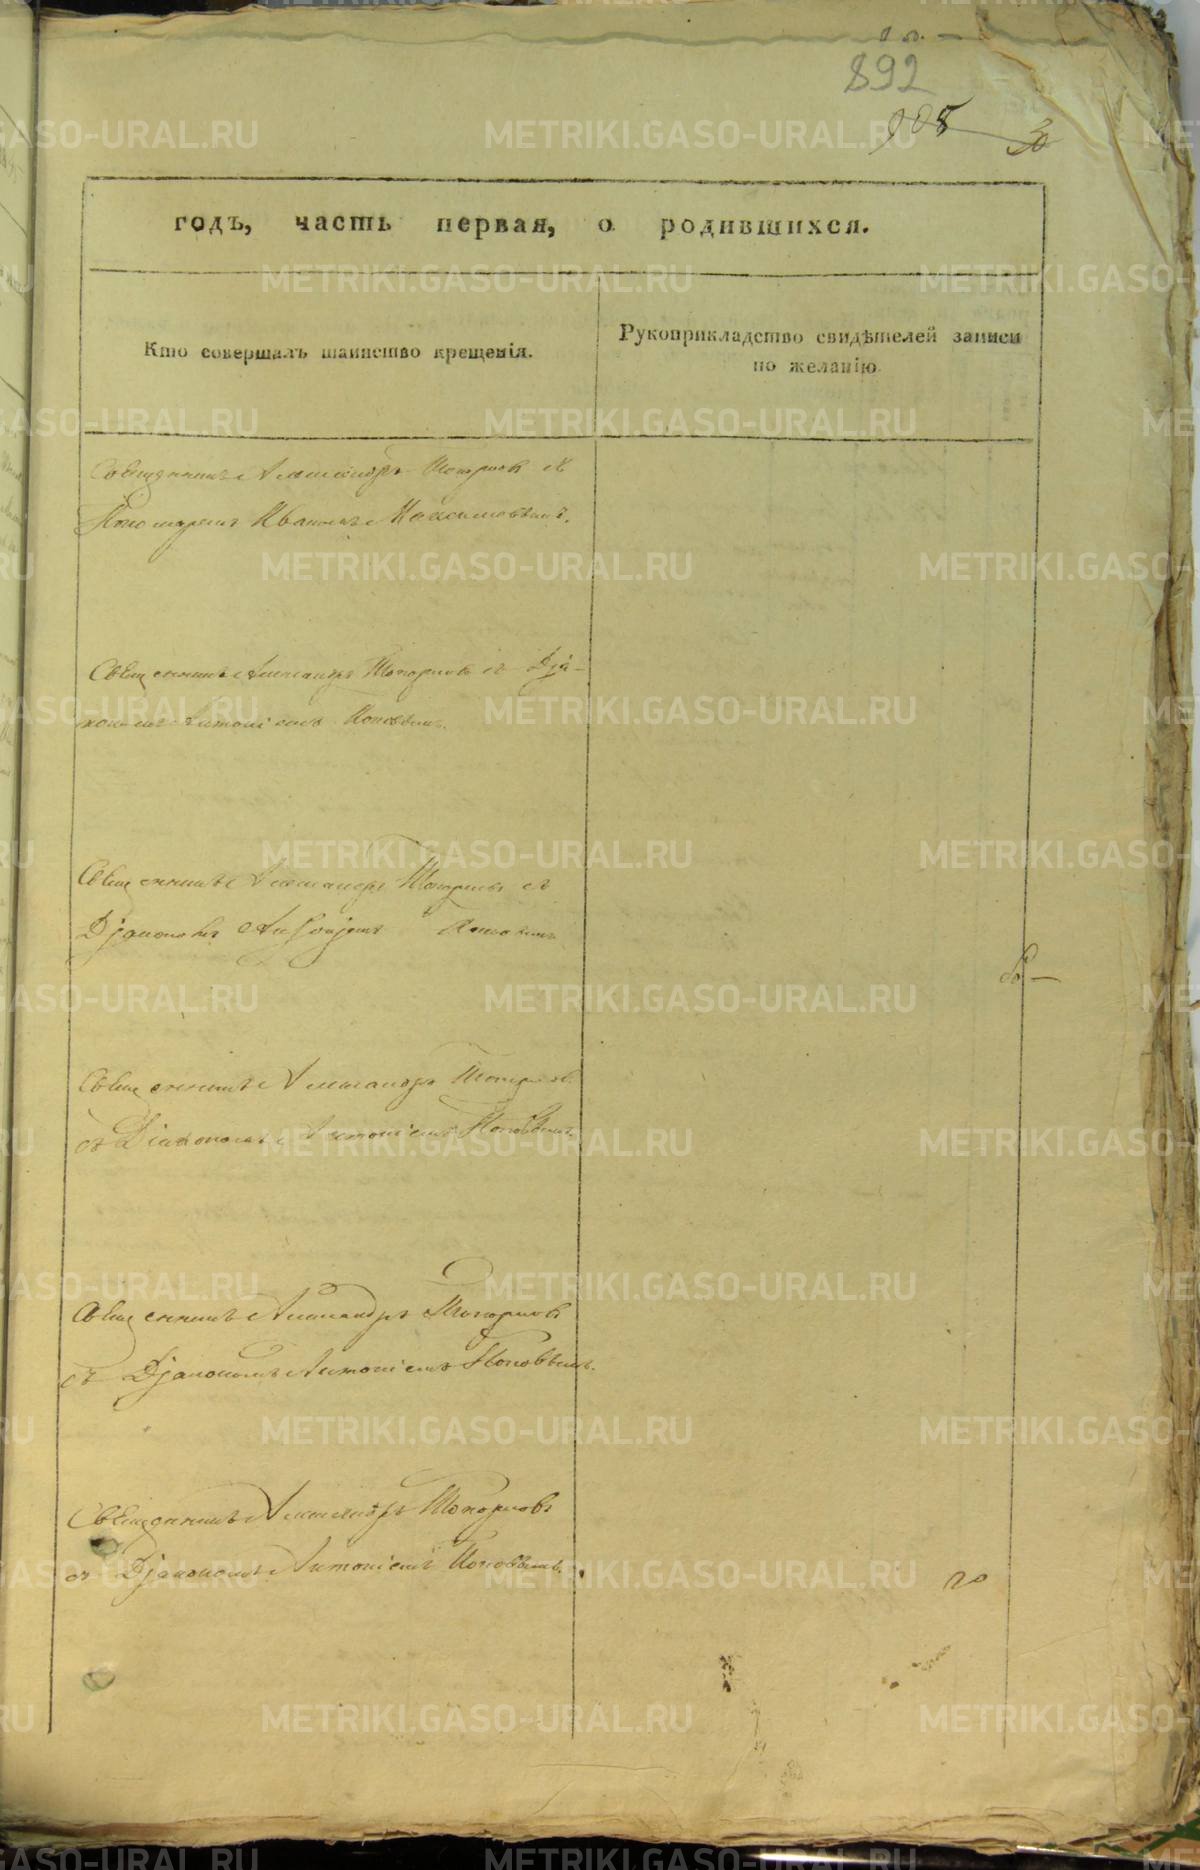 892
908
30
годъ, часть первая, о родившихся.
Кто совершалъ таинство крещенія.
Рукоприкладство свидѣтелей записи
по желанію.
Священникъ Александръ Топорковъ съ
Пономаремъ Иваномъ Максимовымъ.
Священникъ Александръ Топорковъ съ Діа-
кономъ Антоніемъ Поповымъ.
Священникъ Александръ Топорковъ съ
Діакономъ Антоніемъ
Священникъ Александръ Топорковъ
съ Діакономъ Антоніемъ Поповымъ.
Священникъ Александръ Топорковъ
съ Діакономъ Антоніемъ Поповымъ.
Священникъ Александръ Топорковъ
съ Діакономъ Антоніемъ Поповымъ.
METRIKI.GASO-URAL.RU